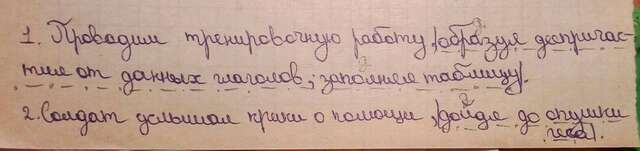 1. Проводим тренировочную работу, |образуя деепричас-
тие от данных глаголов, заполняем таблицу|.
2. Солдат услышал крики о помощи, |дойдя до опушки
леса|.